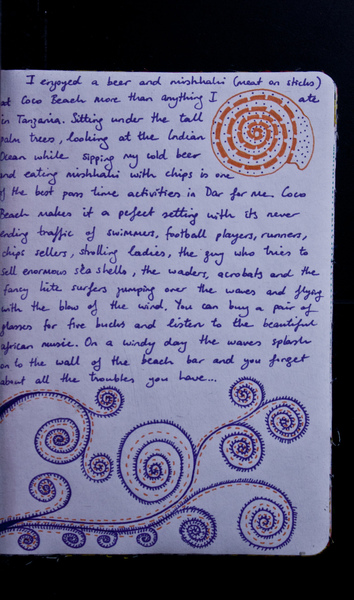 I enjoyed a beer and mishkaki (meat on sticks)
at Coco Beach more than anything I ate
in Tanzania. Sitting under the tall
palm trees, looking at the Indian
Ocean while sipping my cold beer
and eating mishkaki with chips is one
of the best pass time activities in Dar for me. Coco
Beach makes it a pefect setting with its never
ending traffic of swimmers, football players, runners,
chips sellers, strolling ladies, the guy who tries to
sell enormous sea shells, the waders, acrobats and the
fancy kite surfers jumping over the waves and flying
with the blow of the wind. You can buy a pair of
glasses for five bucks and listen to the beautiful
african music. On a windy day the waves splash
on to the wall of the beach bar and you forget
about all the troubles you have...